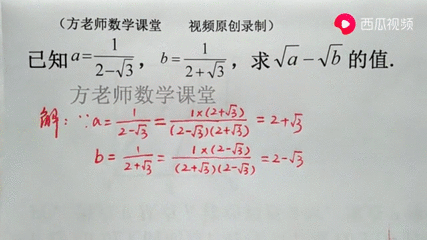 （方老师数学课堂 视频原创录制）
西瓜视频
已知a=1/(2-√3)，b=1/(2+√3)，求√a-√b的值.
方老师数学课堂
解：∵a=1/(2-√3)=1×(2+√3)/((2-√3)(2+√3))=2+√3
b=1/(2+√3)=1×(2-√3)/((2+√3)(2-√3))=2-√3